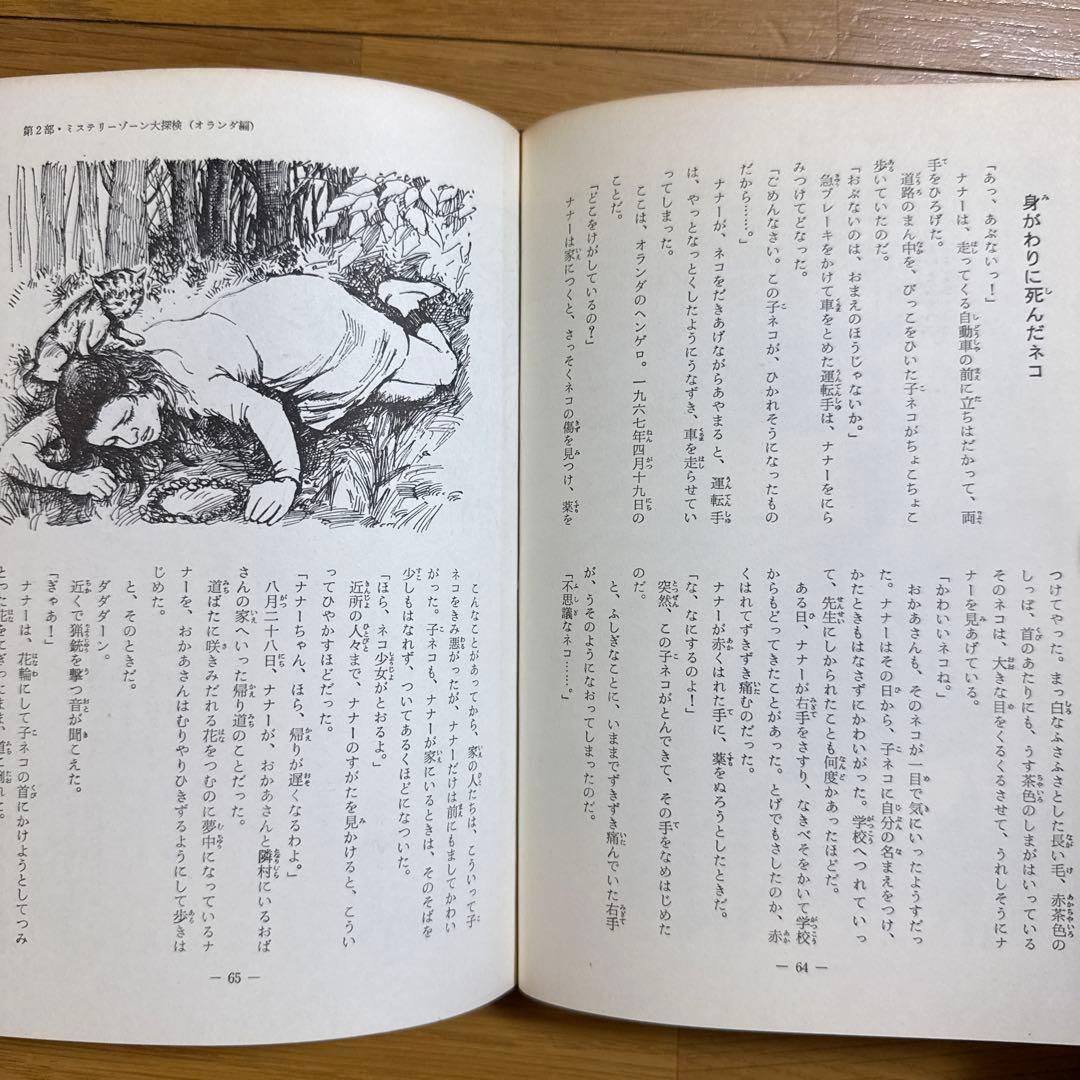 身がわりに死んだネコ
「あっ、あぶないっ！」
ナナーは、走ってくる自動車の前に立ちはだかって、両
手をひろげた。
道路のまん中を、びっこをひいた子ネコがちょこちょこ
歩いていたのだ。
「おぶないのは、おまえのほうじゃないか。」
急ブレーキをかけて車をとめた運転手は、ナナーをにら
みつけてどなった。
「ごめんなさい。この子ネコが、ひかれそうになったもの
だから……。」
ナナーが、ネコをだきあげながらあやまると、運転手
は、やっとなっとくしたようにうなずき、車を走らせてい
ってしまった。
ここは、オランダのヘンゲロ。一九六七年四月十九日の
ことだ。
「どこをけがしているの？」
ナナーは家につくと、さっそくネコの傷を見つけ、薬を
つけてやった。まっ白なふさふさとした長い毛、赤茶色の
しっぽ、首のあたりにも、うす茶色のしまがはいっている
そのネコは、大きな目をくるくるさせて、うれしそうにナ
ナーを見あげている。
「かわいいネコね。」
おかあさんも、そのネコが一目で気にいったようすだっ
た。ナナーはその日から、子ネコに自分の名まえをつけ、
かたときもはなさずにかわいがった。学校へつれていっ
て、先生にしかられたことも何度かあったほどだ。
ある日。ナナーが右手をさすり、なきべそをかいて学校
からもどってきたことがあった。とげでもさしたのか、赤
くはれてずきずき痛むのだった。
ナナーが赤くはれた手に、薬をぬろうとしたときだ。
「な、なにするのよ！」
突然、この子ネコがとんできて、その手をなめはじめた
のだ。
と、ふしぎなことに、いままでずきずき痛んでいた右手
が、うそのようになおってしまったのだ。
「不思議なネコ……。」
— 64 —
第2部・ミステリーゾーン大探検（オランダ編）
こんなことがあってから、家の人たちは、こういって子
ネコをきみ悪がったが、ナナーだけは前にもましてかわい
がった。子ネコも、ナナーが家にいるときは、そのそばを
少しもはなれず、ついてあるくほどになついた。
「ほら、ネコ少女がとおるよ。」
近所の人々まで、ナナーのすがたを見かけると、こうい
ってひやかすほどだった。
「ナナーちゃん、ほら、帰りが遅くなるわよ。」
八月二十八日、ナナーが、おかあさんと隣村にいるおば
さんの家へいった帰り道のことだった。
道ばたに咲きみだれる花をつむのに夢中になっているナ
ナーを、おかあさんはむりやりひきずるようにして歩きは
じめた。
と、そのときだ。
ダダダーン。
近くで猟銃を撃つ音が聞こえた。
「ぎゃあ！」
ナナーは、花輪にして子ネコの首にかけようとしてつみ
とった花をにぎったまま、道に倒れた。
— 65 —